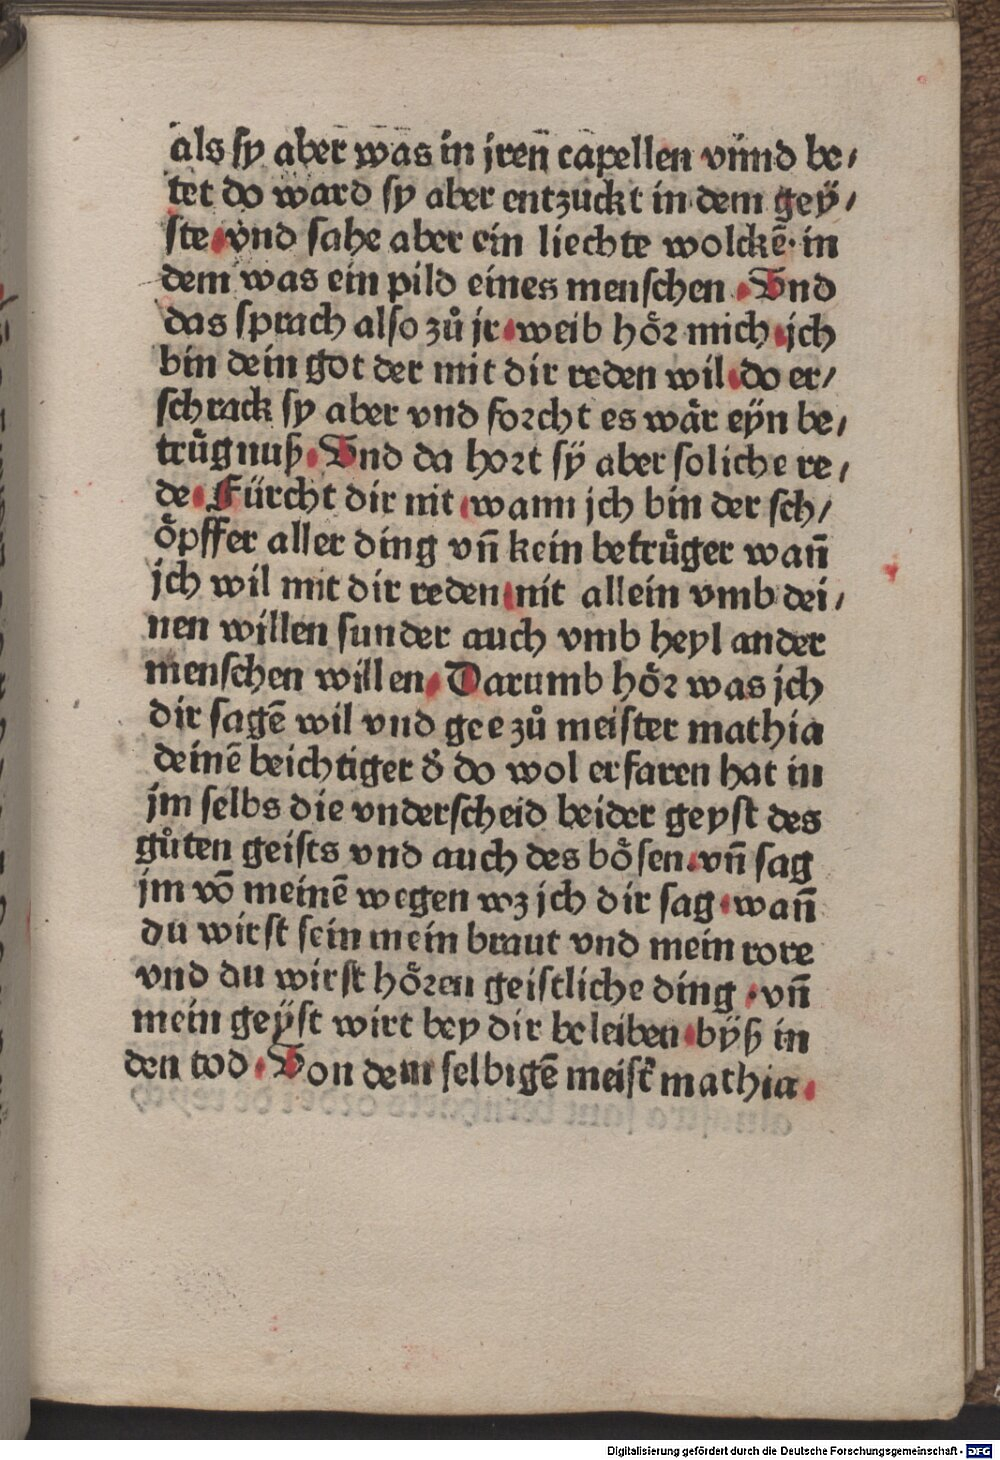 als sy aber was in jren̄ capellen vnnd be/
tet do ward sy aber entzuckt in dem geÿ/
ste. vnd sahe aber ein liechte wolckē. in
dem was ein pild eines menschen. Vnd
das sprach also zů jr. weib hoͤr mich. jch
bin dein got der mit dir reden wil. do er/
schrack sy aber vnd forcht es waͤr eÿn be/
truͤgnuß. Vnd da hort sÿ aber soliche re/
de. Fürcht dir nit. wann jch bin der sch/
oͤpffer aller ding vn̄ kein betruͤger wan̄
jch wil mit dir reden. nit allein vmb dei/
nen willen sunder auch vmb heyl ander
menschen willen. Darumb hoͤr was jch
dir sagē wil vnd gee zů meister mathia
deinē beichtiger d̓ do wol erfaren hat in
jm selbs die vnderscheid beider geyst des
gůten geists vnd auch des boͤsen. vn̄ sag
jm vō meinē wegen wz jch dir sag. wan̄
du wirst sein mein braut vnd mein rore
vnd du wirst hoͤren geistliche ding. vn̄
mein geÿst wirt bey dir beleiben. bÿß in
den tod. Von dem selbigē meist̄ mathia.
Digitalisierung gefördert durch die Deutsche Forschungsgemeinschaft - DFG